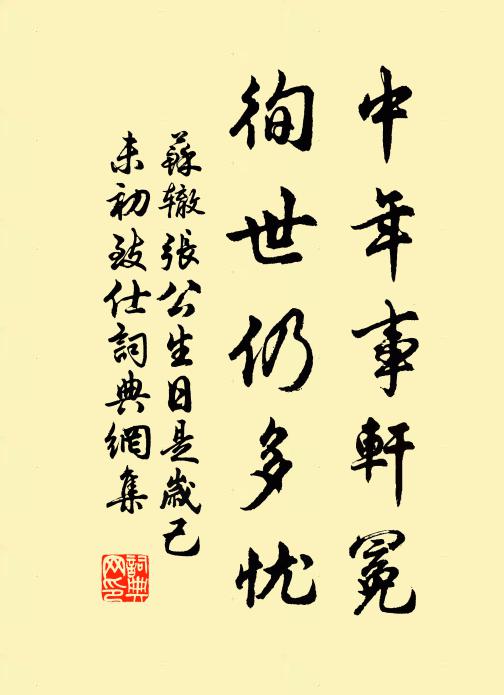 中年事軒冕
徇世仍多忧
蘇辙張公生日是歲己
未初致仕詞典網集
詞典
网印